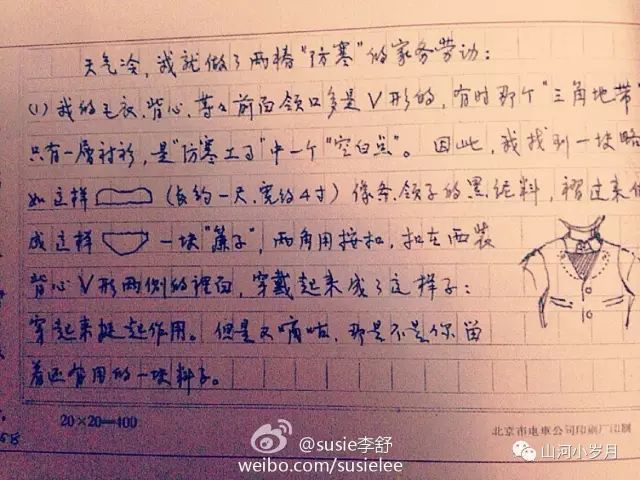 天气冷，我就做了两椿“防寒”的家务劳动：
(1) 我的毛衣、背心、等々前面领口多是V形的，有时那个“三角地带”
只有一层衬衫，是“防寒工事”中一个“空白点”。因此，我找到一块略
如这样（长约一尺，宽约4寸）像条领子的黑绒料，褶过来
成这样一块“帘子”，两角用按扣，扣在西装
背心V形两侧的裡面，穿戴起来成了这样子：
穿起来挺起作用。但是又嘀咕，那是不是你留
着还有用的一块料子。
20×20=400
北京市电车公司印刷厂印制
@susie李舒
weibo.com/susielee
山河小岁月